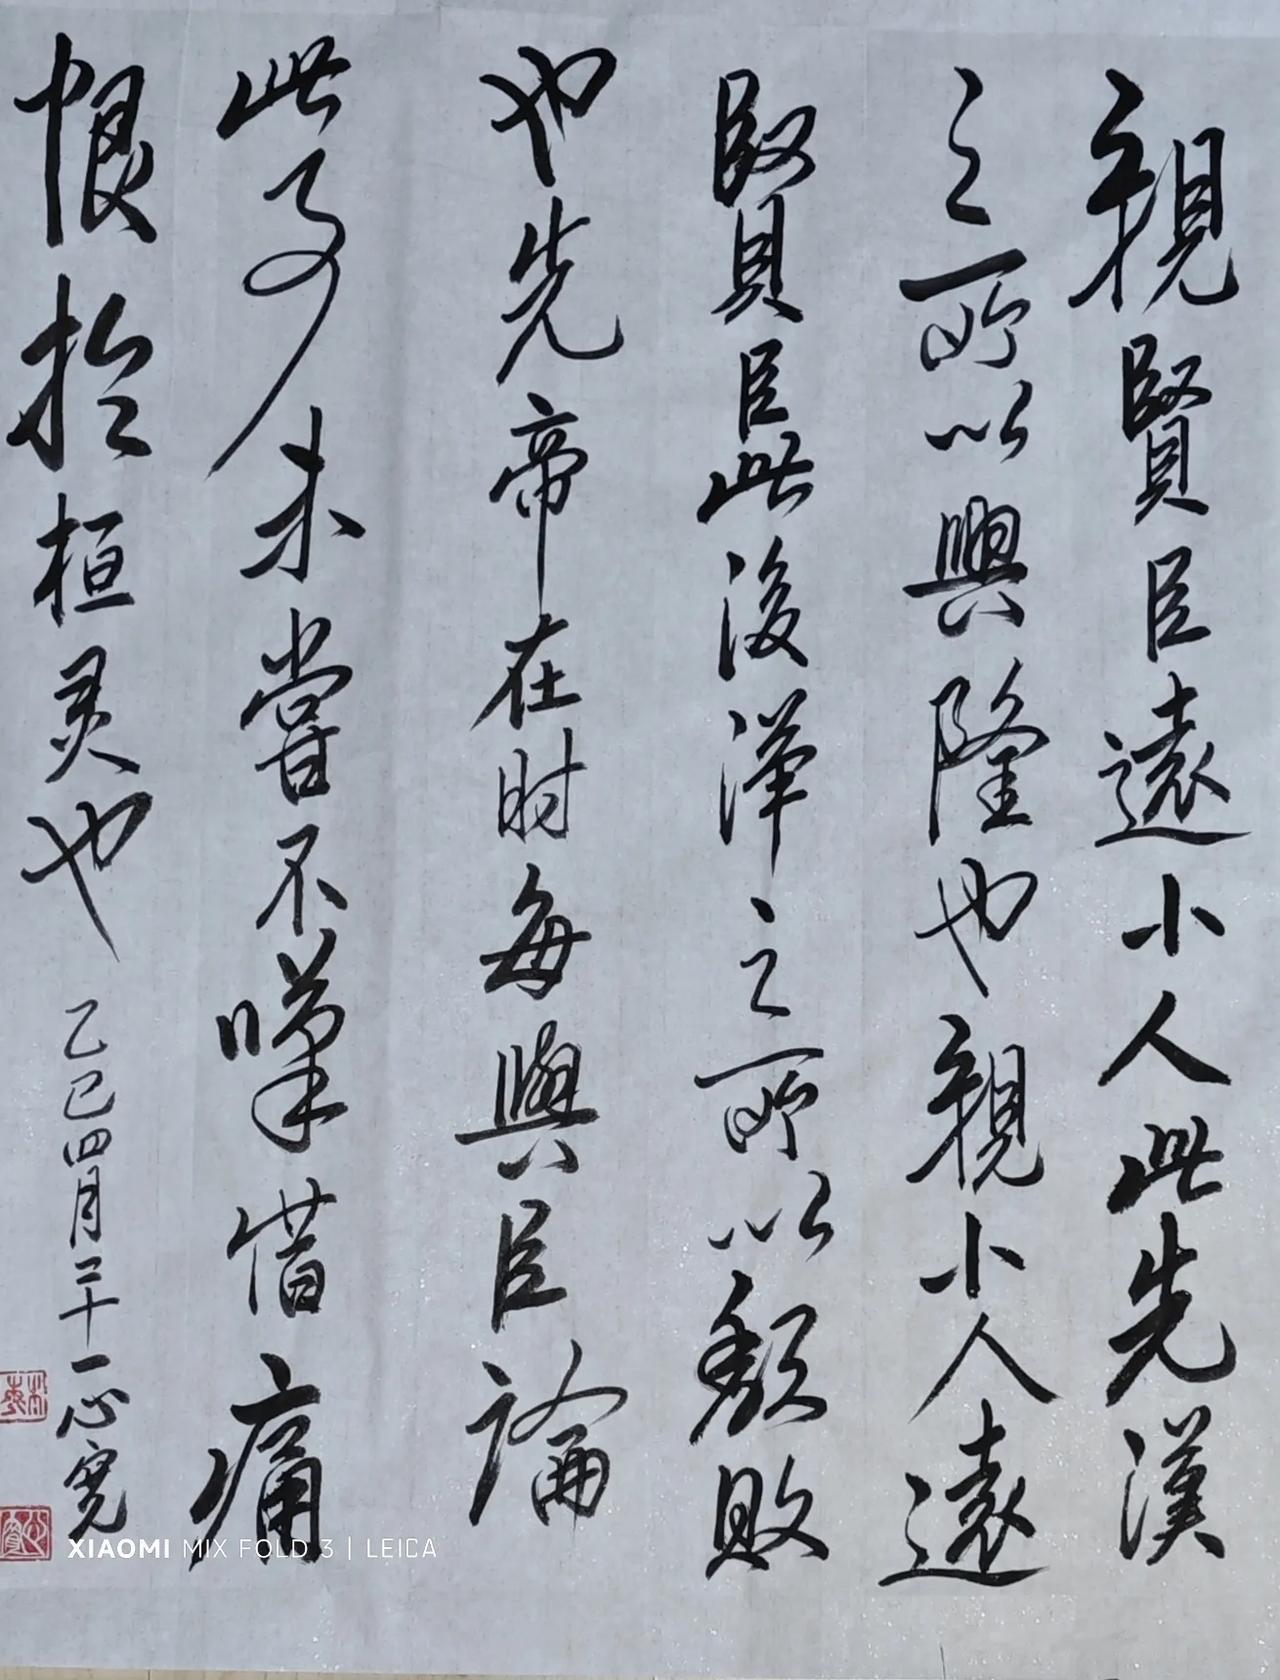 親賢臣遠小人此先漢
之所以興隆也親小人遠
賢臣此後漢之所以頹敗
也先帝在时每與臣論
此事未嘗不嘆惜痛
恨於桓灵也
乙巳四月二十一心寬
XIAOMI MIX FOLD 3 | LEICA